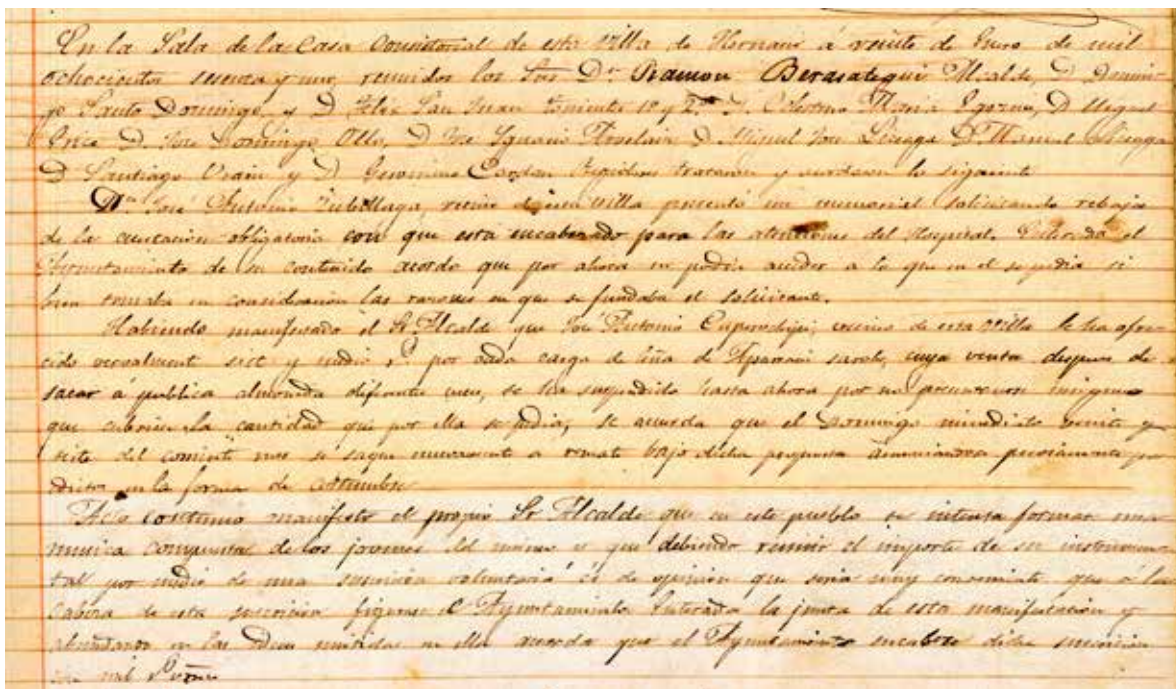 En la Sala de la Casa Consistorial de esta Villa de Hernani á veinte de Enero de mil
ochocientos sesenta y uno, reunidos los Sres Dn Ramon Berasategui Alcalde, D Domin-
go Santo Domingo, y D Felix San Juan Teniente 1º y 2º D. Maria D Miguel
D. José Domingo Ollo, D José Ignacio D Miguel José Liceaga D Manuel
D Santiago y D Geronimo Cardon Regidores trataron y acordaron lo siguiente
Dn José Antonio vecino de esta villa presentó un memorial solicitando rebaja
de la obligatoria con que esta encabezado para las atenciones del Hospital. Enterado el
Ayuntamiento de su contenido acordó que por ahora no podia acceder a lo que en el se pedia si
bien tomaba en consideracion las razones en que se fundaba el solicitante.
Habiendo manifestado el Sr Alcalde que José Antonio vecino de esta Villa le ha ofre-
cido verbalmente siete y medio rs por cada carga de leña de cuya venta despues de
sacar á publica almoneda diferentes veces, se ha suspendido hasta ahora por no
que cubriese la cantidad que por ella se pedia, se acuerda que el Domingo inmediato veinte y
siete del corriente mes se saque nuevamente a remate bajo dicha propuesta previamente por
edictos en la forma de costumbre
Acto continuo manifestó el propio Sr Alcalde que en este pueblo se intenta formar una
musica compuesta de los jovenes del mismo y que debiendo reunir el importe de su instrumen-
tal por medio de una suscricion voluntaria es de opinion que seria muy conveniente que á la
cabeza de esta suscricion figurase el Ayuntamiento Enterada la junta de esta manifestacion y
abundando en las ideas emitidas en ella acordo que el Ayuntamiento encabece dicha suscricion
con mil rs vn